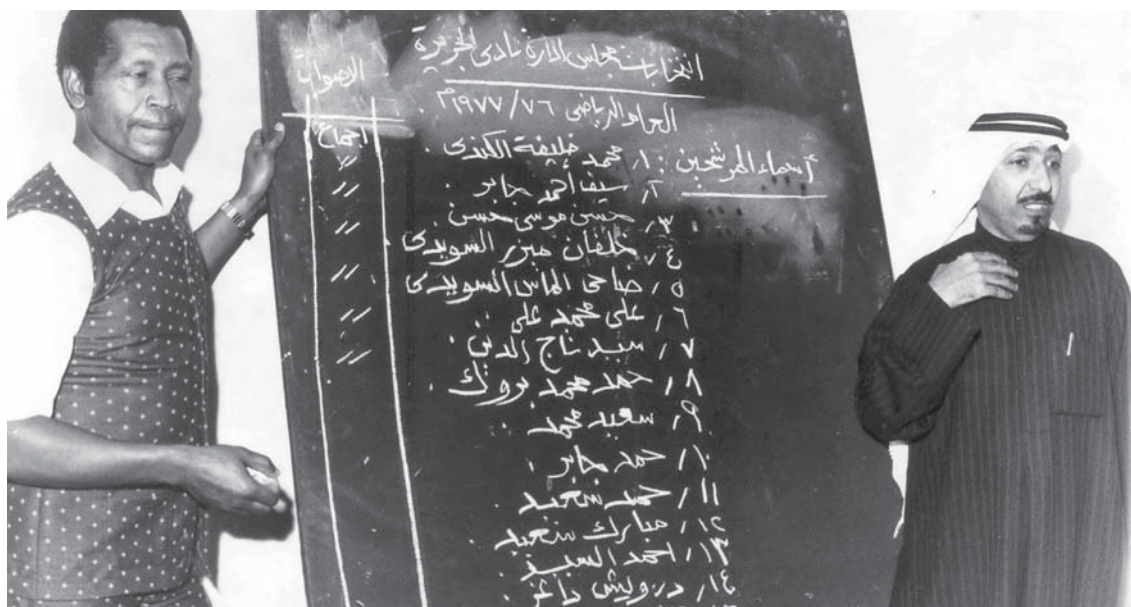 انتخابات مجلس ادارة نادى الجزيرة
العام الرياضى ١٩٧٧/٧٦م
أسماء المرشحين : ١/ محمد خليفة الكندى .
٢/ سيف أحمد جابر .
٣/ حسن موسى حسن
٤/ خلفان السويدى
٥/ ضاحى الماس السويدى
٦/ على محمد على .
٧/ سيد تاج الدين .
٨/ حمد محمد بروك .
٩/ سعيد محمد .
١٠/ حمد جابر .
١١/ حمد سعيد .
١٢/ مبارك سعيد .
١٣/ احمد السيد .
١٤/ درويش .
الاصوات
اجماع
〃
〃
〃
〃
〃
〃